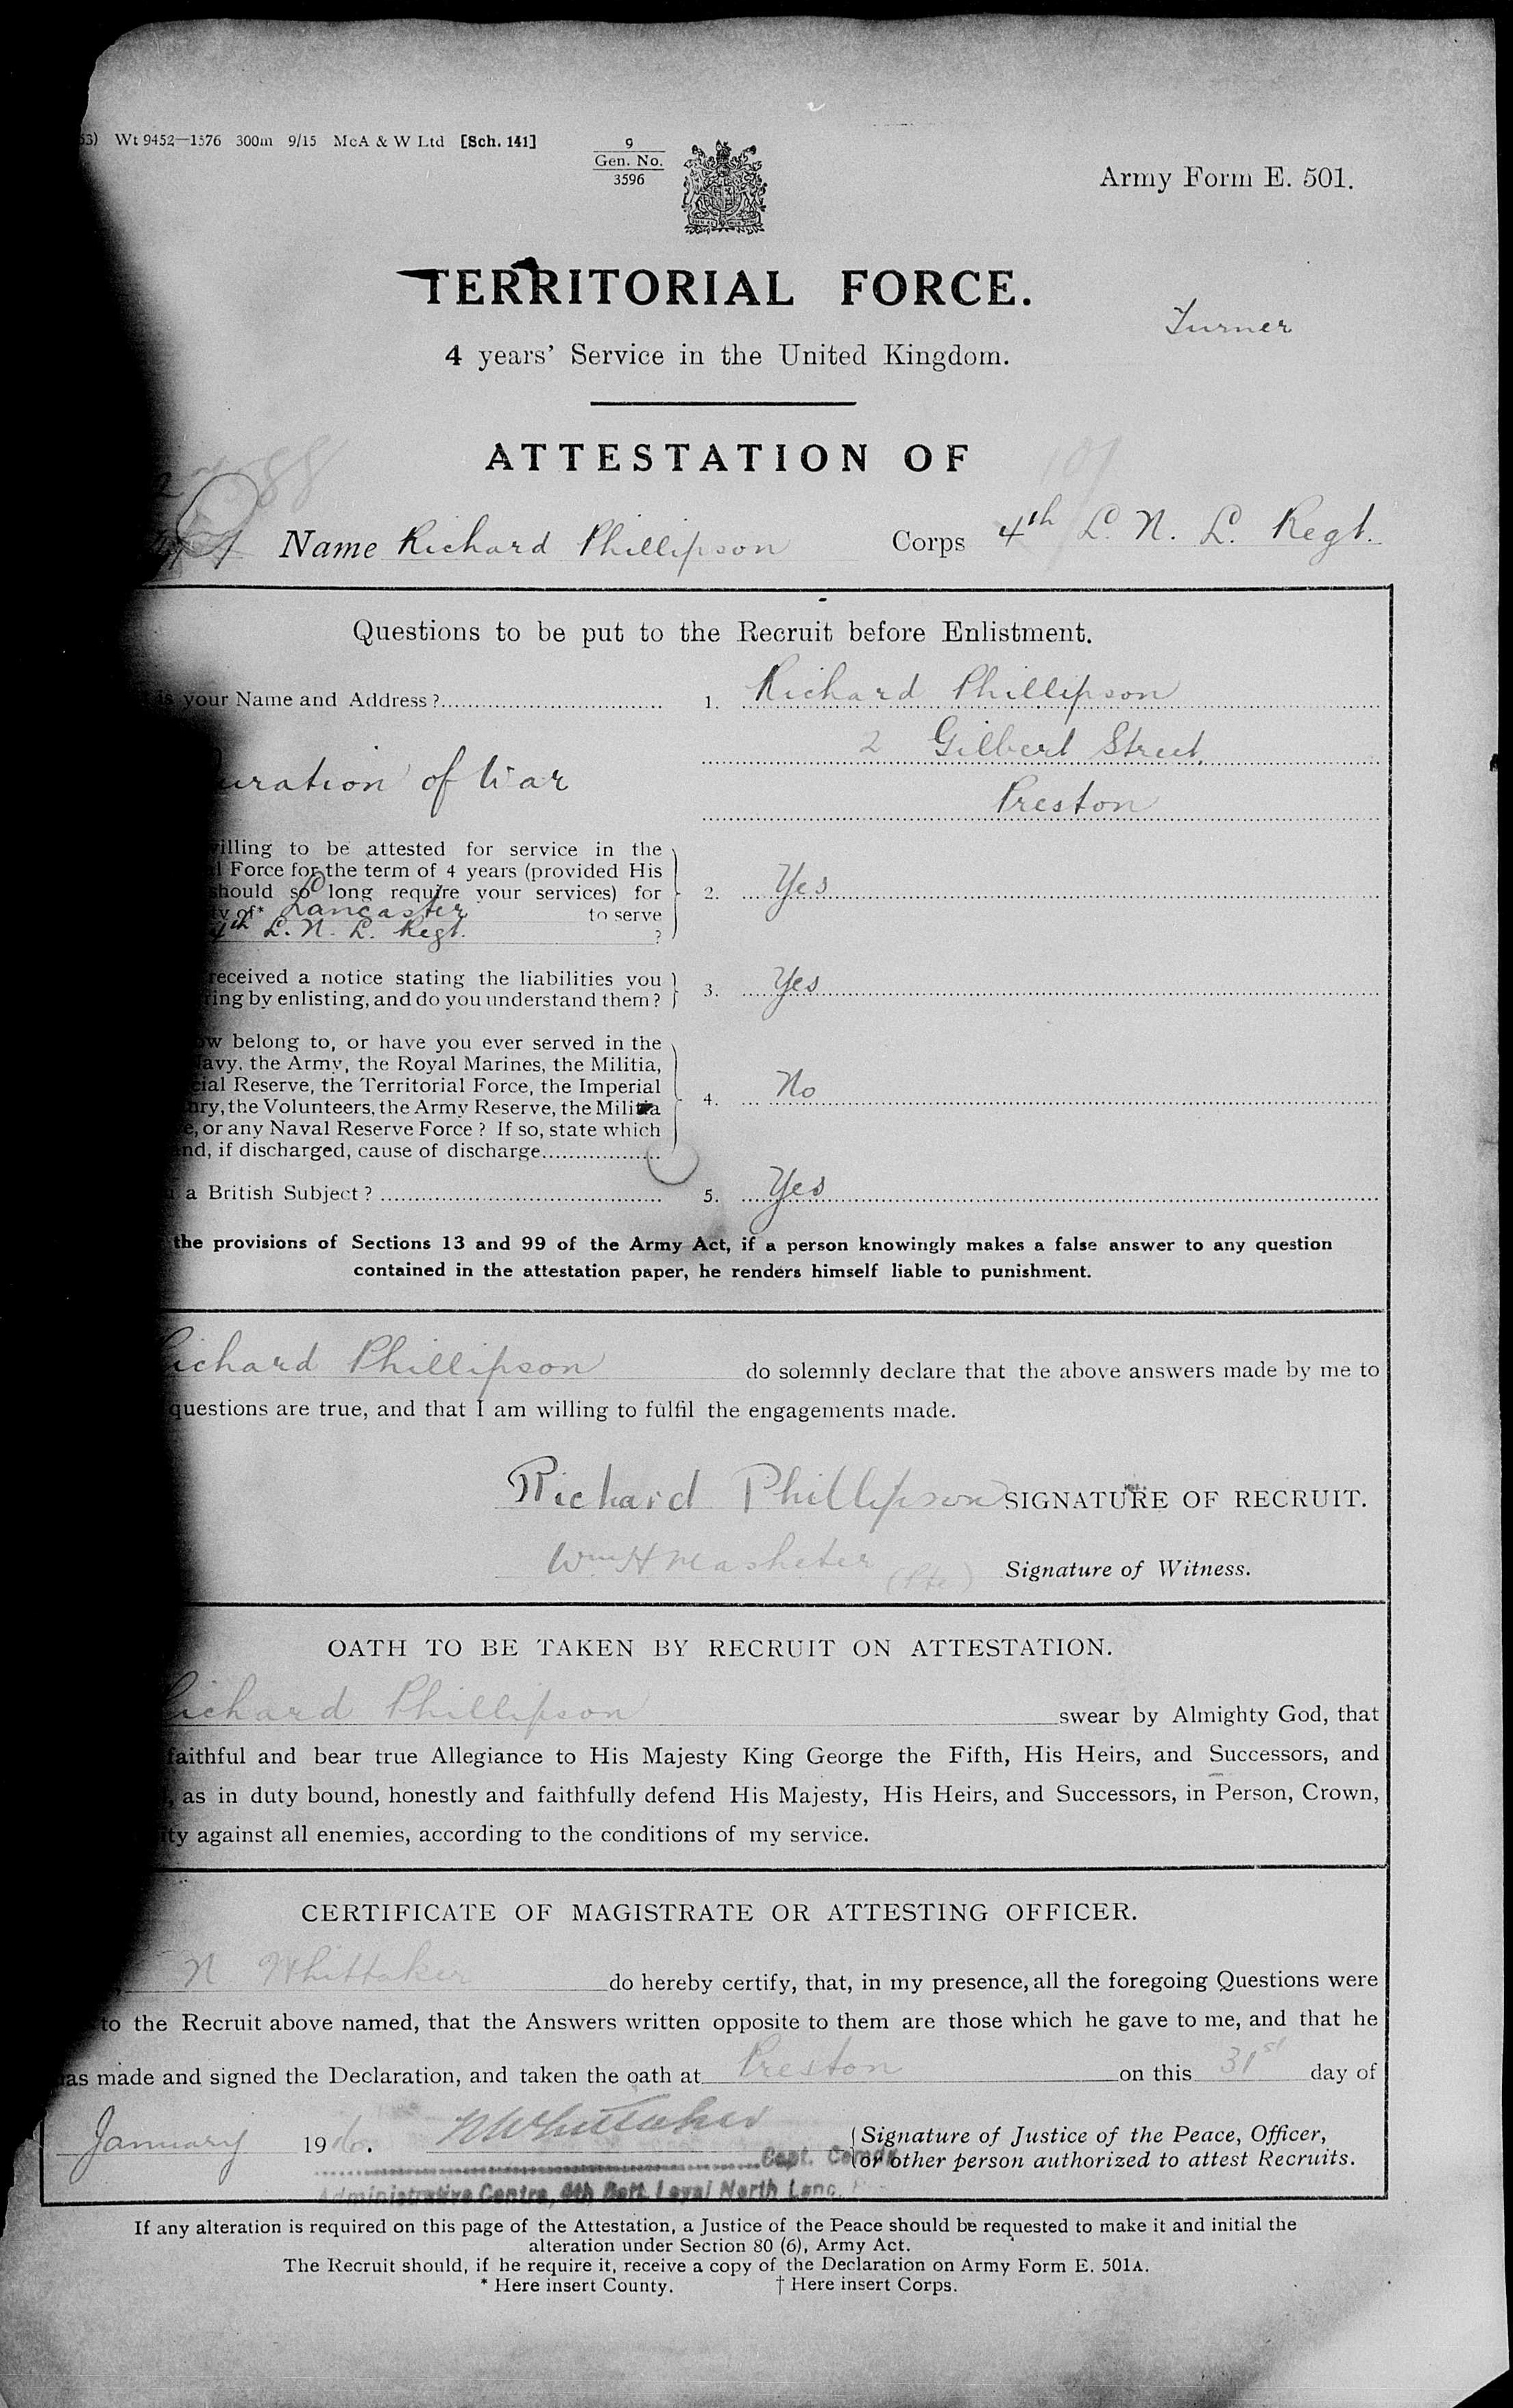 53) Wt 9452—1576 300m 9/15 McA & W Ltd [Sch. 141]
9
Gen. No.
3596
Army Form E. 501.
TERRITORIAL FORCE.
Turner
4 years' Service in the United Kingdom.
ATTESTATION OF
Name Richard Phillipson Corps 4th L. N. L. Regt.
Questions to be put to the Recruit before Enlistment.
is your Name and Address? 1. Richard Phillipson
2 Gilbert Street,
uration of War
Preston
illing to be attested for service in the
l Force for the term of 4 years (provided His
should so long require your services) for 2. Yes
ty of* Lancaster to serve
4th L. N. L. Regt. ?
received a notice stating the liabilities you
ring by enlisting, and do you understand them? 3. Yes
ow belong to, or have you ever served in the
Navy, the Army, the Royal Marines, the Militia,
cial Reserve, the Territorial Force, the Imperial
nry, the Volunteers, the Army Reserve, the Militia 4. No
e, or any Naval Reserve Force? If so, state which
and, if discharged, cause of discharge
a British Subject? 5. Yes
the provisions of Sections 13 and 99 of the Army Act, if a person knowingly makes a false answer to any question
contained in the attestation paper, he renders himself liable to punishment.
ichard Phillipson do solemnly declare that the above answers made by me to
questions are true, and that I am willing to fulfil the engagements made.
Richard Phillipson SIGNATURE OF RECRUIT.
Wm H Masheter (Pte) Signature of Witness.
OATH TO BE TAKEN BY RECRUIT ON ATTESTATION.
Richard Phillipson swear by Almighty God, that
faithful and bear true Allegiance to His Majesty King George the Fifth, His Heirs, and Successors, and
, as in duty bound, honestly and faithfully defend His Majesty, His Heirs, and Successors, in Person, Crown,
ity against all enemies, according to the conditions of my service.
CERTIFICATE OF MAGISTRATE OR ATTESTING OFFICER.
N Whittaker do hereby certify, that, in my presence, all the foregoing Questions were
to the Recruit above named, that the Answers written opposite to them are those which he gave to me, and that he
as made and signed the Declaration, and taken the oath at Preston on this 31st day of
January 1916. N Whittaker Signature of Justice of the Peace, Officer,
Capt. Comdg. or other person authorized to attest Recruits.
Administrative Centre, 4th Batt. Loyal North Lanc.
If any alteration is required on this page of the Attestation, a Justice of the Peace should be requested to make it and initial the
alteration under Section 80 (6), Army Act.
The Recruit should, if he require it, receive a copy of the Declaration on Army Form E. 501A.
* Here insert County. † Here insert Corps.